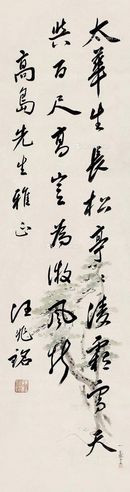 太華生長松亭々凌霜雪天
與百尺高豈為微風折
高島先生雅正
汪兆銘